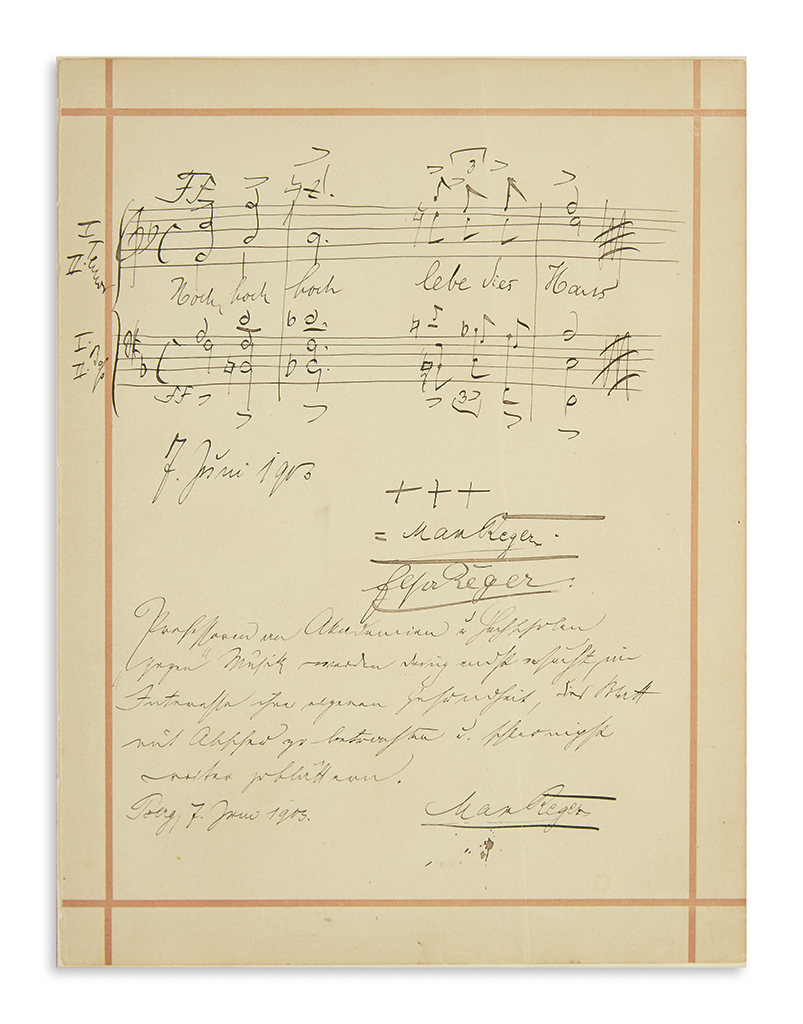 FF
3
I
II. Tenor
Hoch, hoch hoch lebe dies Haus
I.
II.
FF
3
7. Juni 1903
+++
= Max Reger.
Elsa Reger.
Professoren an Akademien u Hochschulen
"gegen" Musik werden dringendst ersucht, im
Interesse ihrer eigenen Gesundheit, dies Blatt
mit Abscheu zu betrachten u. schleunigst
weiter zu blättern.
Berg, 7. Juni 1903.
Max Reger